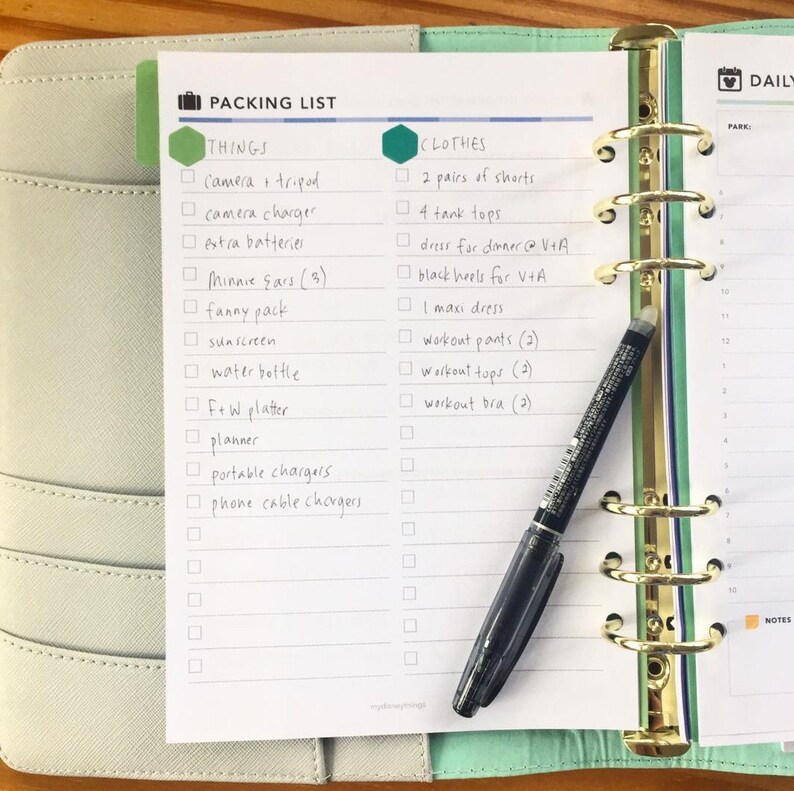 PACKING LIST
THINGS
camera + tripod
camera charger
extra batteries
Minnie Ears (3)
fanny pack
sunscreen
water bottle
F+W platter
planner
portable chargers
phone cable chargers
CLOTHES
2 pairs of shorts
4 tank tops
dress for dinner @ V+A
black heels for V+A
1 maxi dress
workout pants (2)
workout tops (2)
workout bra (2)
mydisneythings
DAILY
PARK:
6
7
8
9
10
11
12
1
2
3
4
5
6
7
8
9
10
NOTES